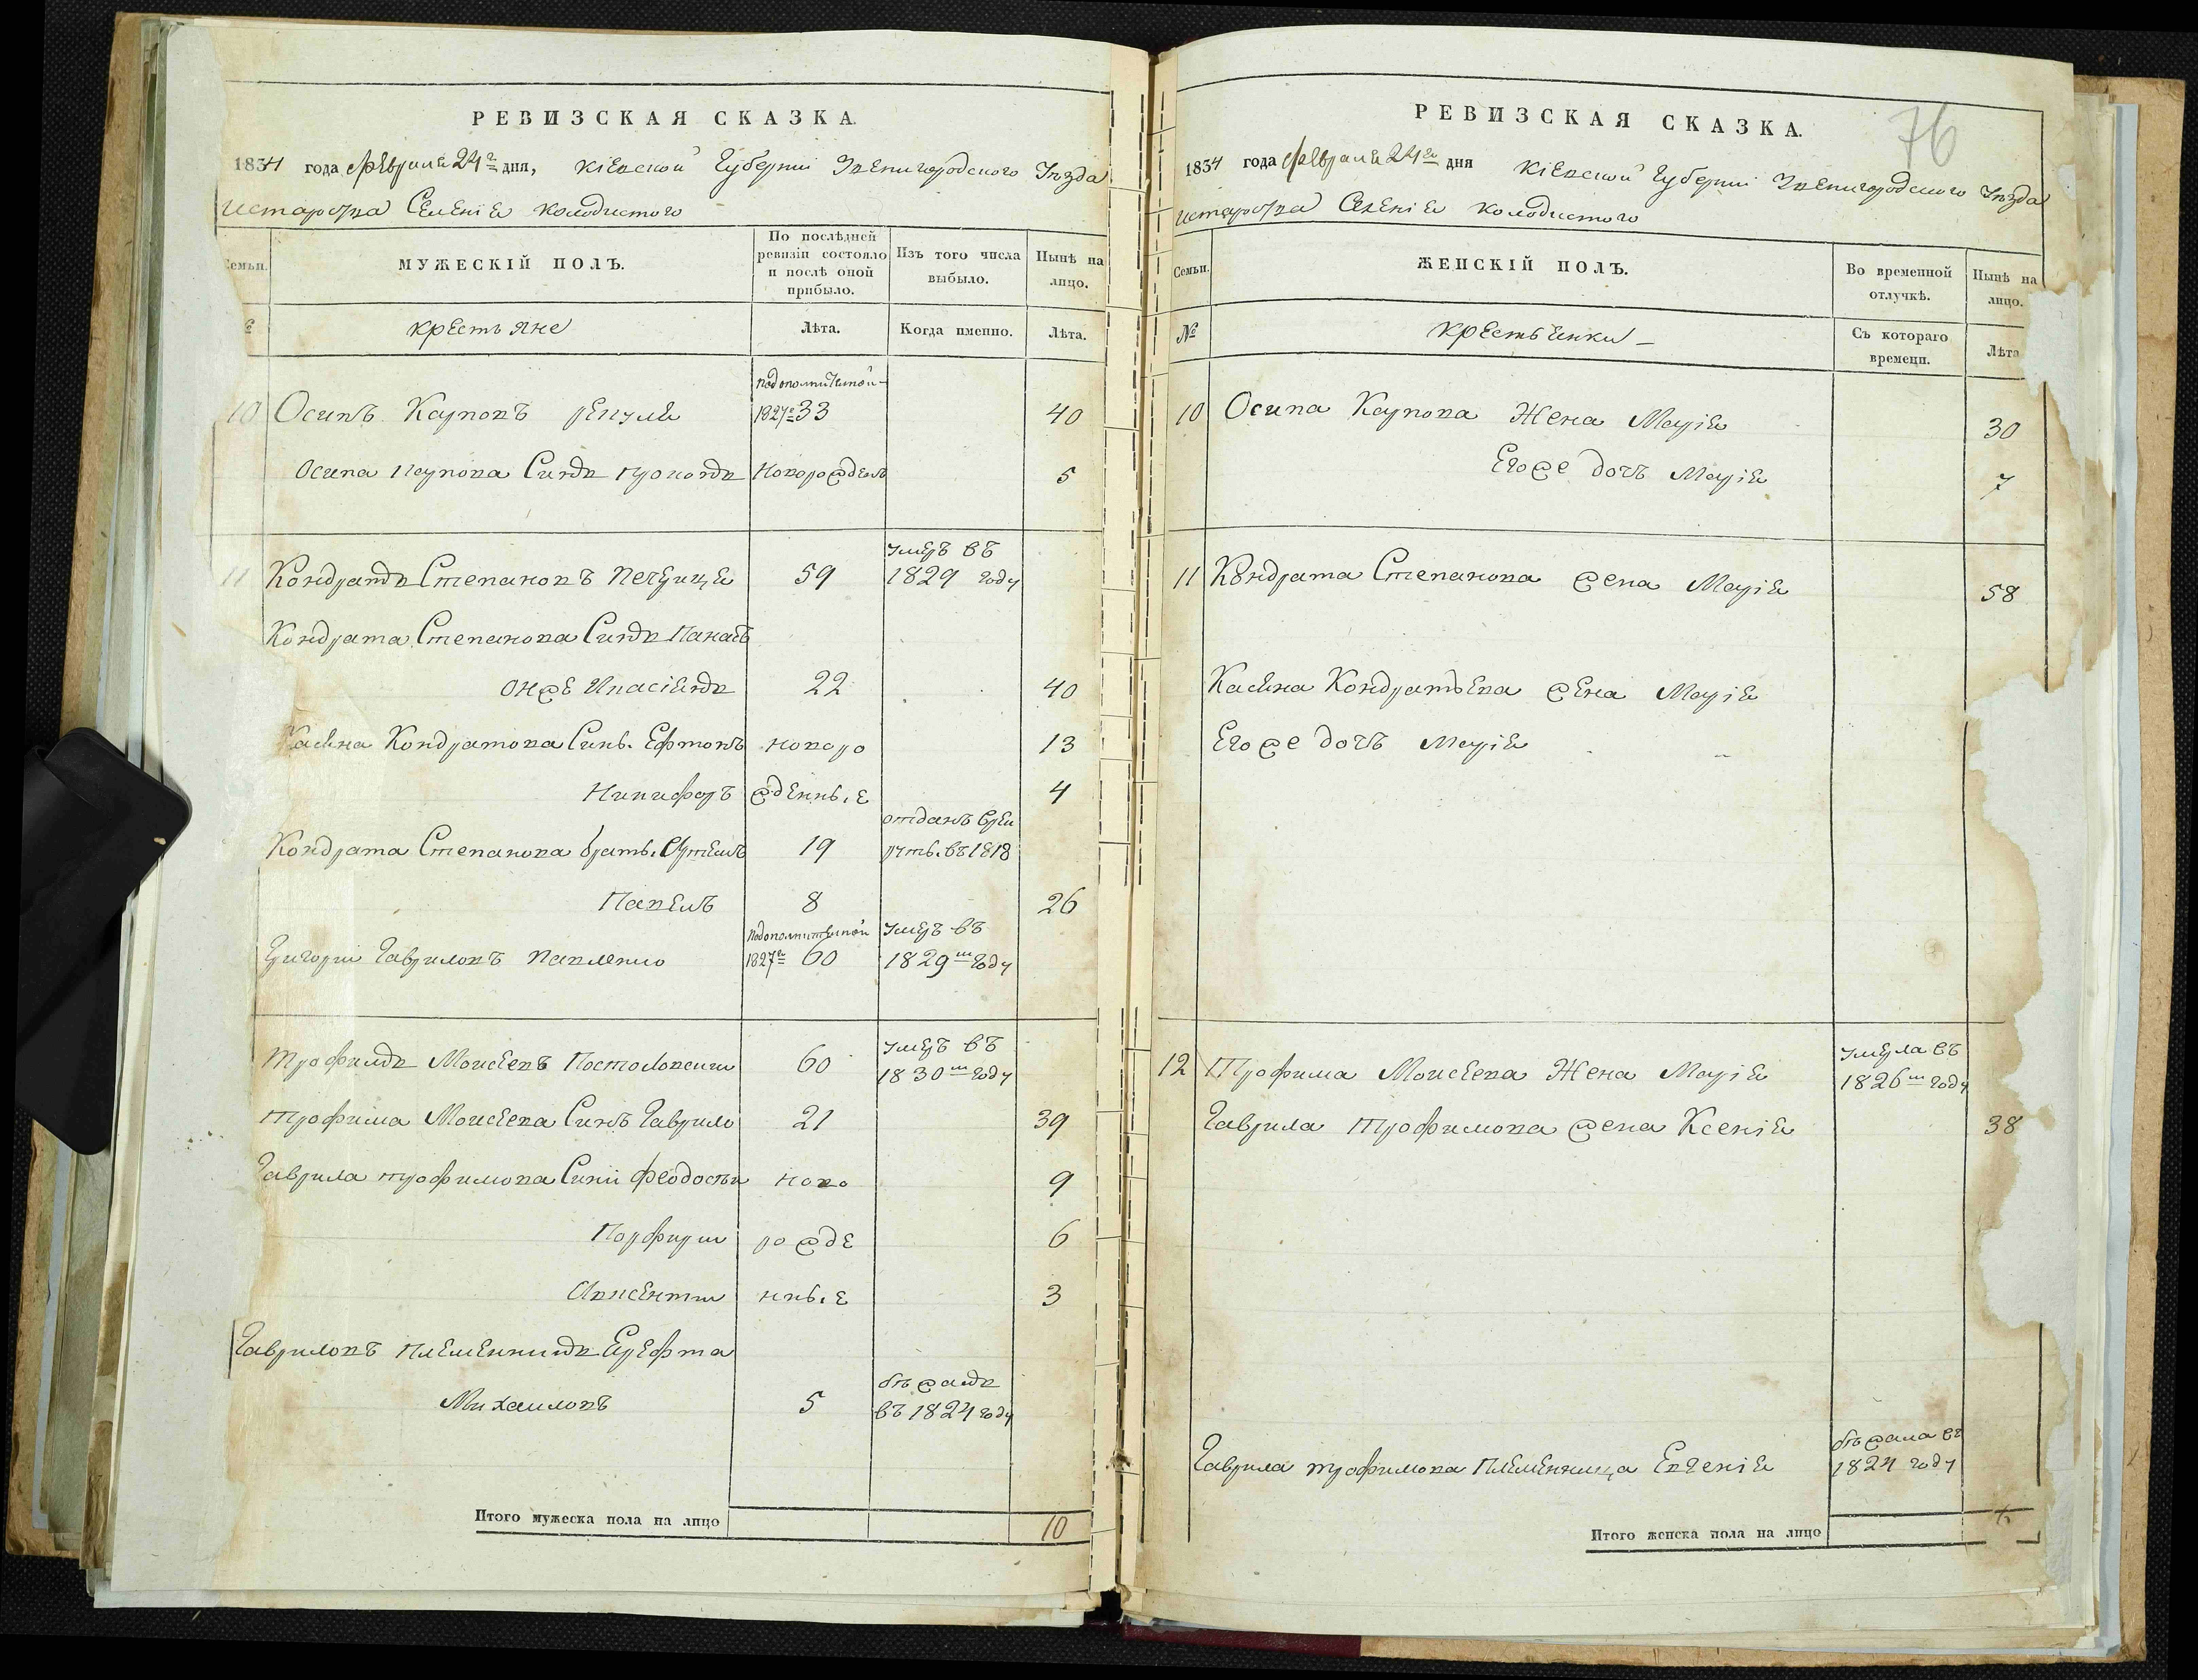 РЕВИЗСКАЯ СКАЗКА.
1834 года февраля 24го дня, Кіевской Губерніи Звенигородского Уезда
Староства Селенія Колодистого
Семьи.
МУЖЕСКІЙ ПОЛЪ.
По послѣдней ревизіи состояло и послѣ оной прибыло.
Изъ того числа выбыло.
Нынѣ на лицо.
крестьяне
Лѣта.
Когда именно.
Лѣта.
10 Осипъ Карповъ 1827г 33 40
Осипа Карпова Синъ новорожденъ 5
11 Кондратъ Степановъ Печерица 59 умеръ въ 1829 году
Кондрата Степанова Синъ Панасъ
онже 22 40
Касяна Кондратова Сины Ефтовъ новоро 13
Никифоръ жденные 4
Кондрата Степанова браты Артемъ 19 отданъ въ рекруты въ 1818
Павелъ 8 26
Григорій Гавриловъ Павленко 1827г 60 умеръ въ 1829м году
Трофимъ Моисеевъ 60 умеръ въ 1830м году
Трофима Моисеева Синъ Гаврило 21 39
Гаврила Трофимова Сини Феодосій ново 9
Порфирій рожде 6
Авксентій нные 3
Гавриловъ племенникъ Ерефта
Михаиловъ 5 бежалъ въ 1824 году
Итого мужеска пола на лицо 10
РЕВИЗСКАЯ СКАЗКА.
76
1834 года февраля 24го дня Кіевской Губерніи Звенигородского Уезда
Староства Селенія Колодистого
Семьи.
ЖЕНСКІЙ ПОЛЪ.
Во временной отлучкѣ.
Нынѣ на лицо.
№
крестьянки
Съ котораго времени.
Лѣта
10 Осипа Карпова Жена Марія 30
Егоже дочъ Марія 7
11 Кондрата Степанова жена Марія 58
Касяна Кондратьева жена Марія
Егоже дочъ Марія
12 Трофима Моисеева Жена Марія умерла въ 1826м году
Гаврила Трофимова жена Ксенія 38
Гаврила Трофимова племенница Евгенія бежала въ 1824 году
Итого женска пола на лицо